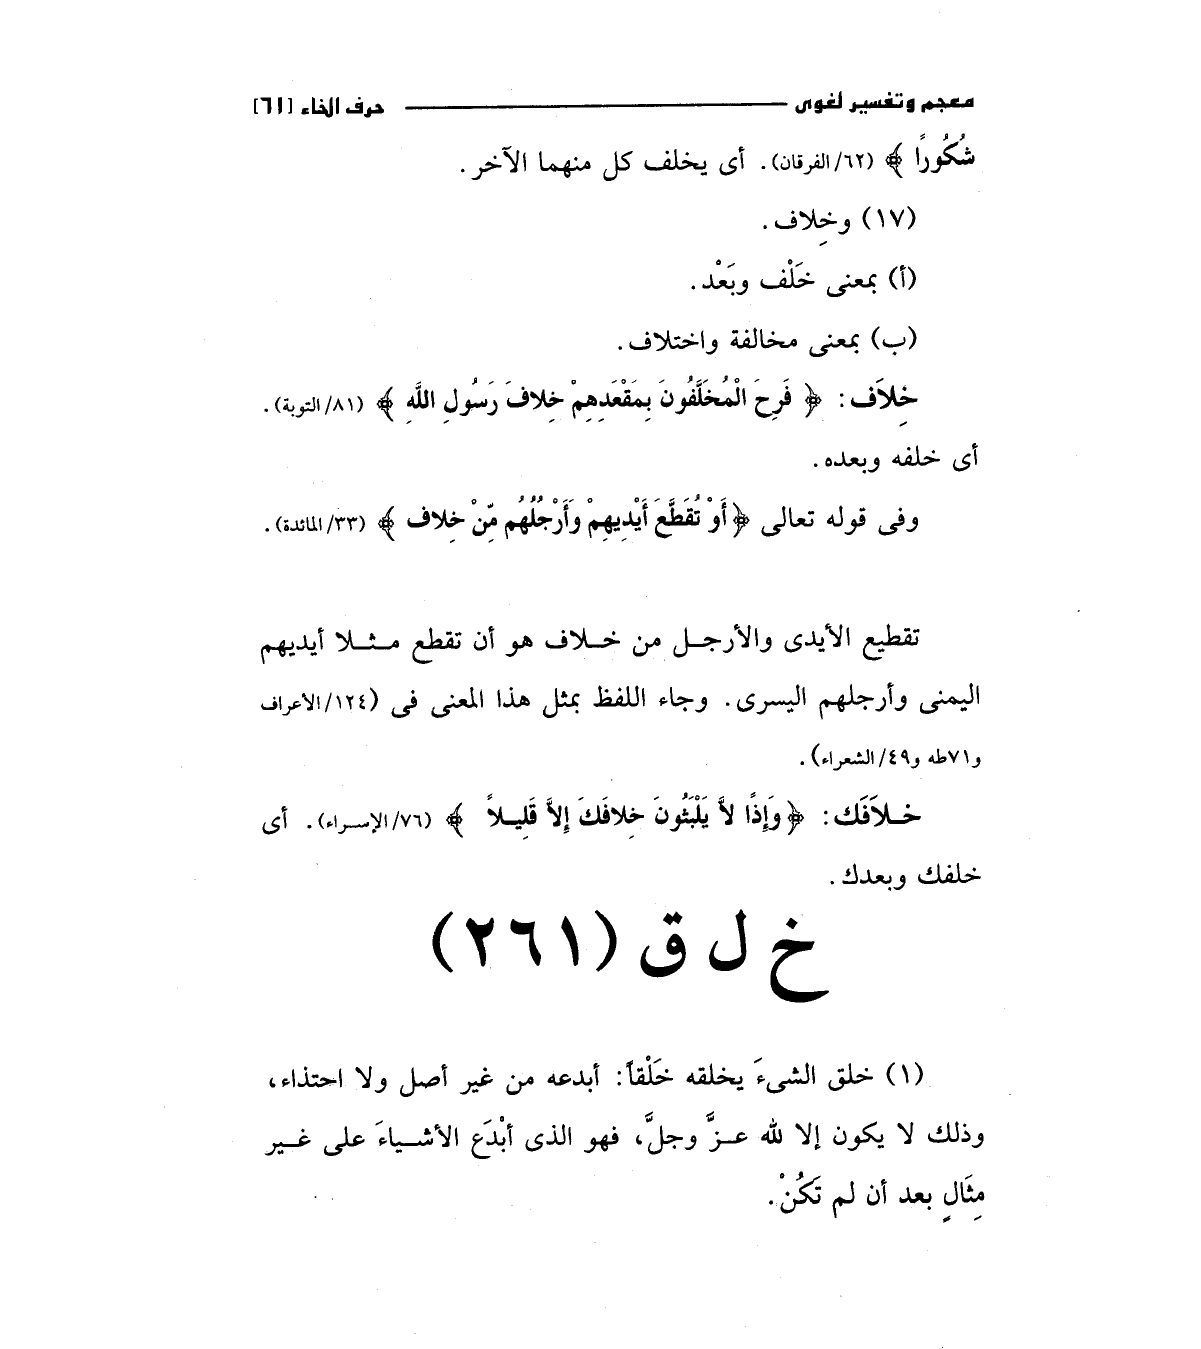 معجم وتفسير لغوى حرف الخاء [٦١]
شُكُورًا ﴾ (٦٢/ الفرقان). أى يخلف كل منهما الآخر.
(١٧) وخِلاف.
(أ) بمعنى خَلْف وبَعْد.
(ب) بمعنى مخالفة واختلاف.
خِلاَف: ﴿ فَرِحَ الْمُخَلَّفُونَ بِمَقْعَدِهِمْ خِلافَ رَسُولِ اللَّهِ ﴾ (٨١/ التوبة).
أى خلفه وبعده.
وفى قوله تعالى ﴿ أَوْ تُقَطَّعَ أَيْدِيهِمْ وَأَرْجُلُهُم مِّنْ خِلاف ﴾ (٣٣/ المائدة).
تقطيع الأيدى والأرجـل من خـلاف هو أن تقطع مـثـلا أيديهم
اليمنى وأرجلهم اليسرى. وجاء اللفظ بمثل هذا المعنى فى (١٢٤/ الأعراف
و٧١طه و٤٩/ الشعراء).
خـلاَفَك: ﴿ وَإِذًا لاَّ يَلْبَثُونَ خِلافَكَ إِلاَّ قَلِيـلاً ﴾ (٧٦/ الإسـراء). أى
خلفك وبعدك.
خ ل ق (٢٦١)
(١) خلق الشىءَ يخلقه خَلْقاً: أبدعه من غير أصل ولا احتذاء،
وذلك لا يكون إلا لله عـزَّ وجلَّ، فهو الذى أبْدَع الأشـياءَ على غـير
مِثَالٍ بعد أن لم تَكُنْ.